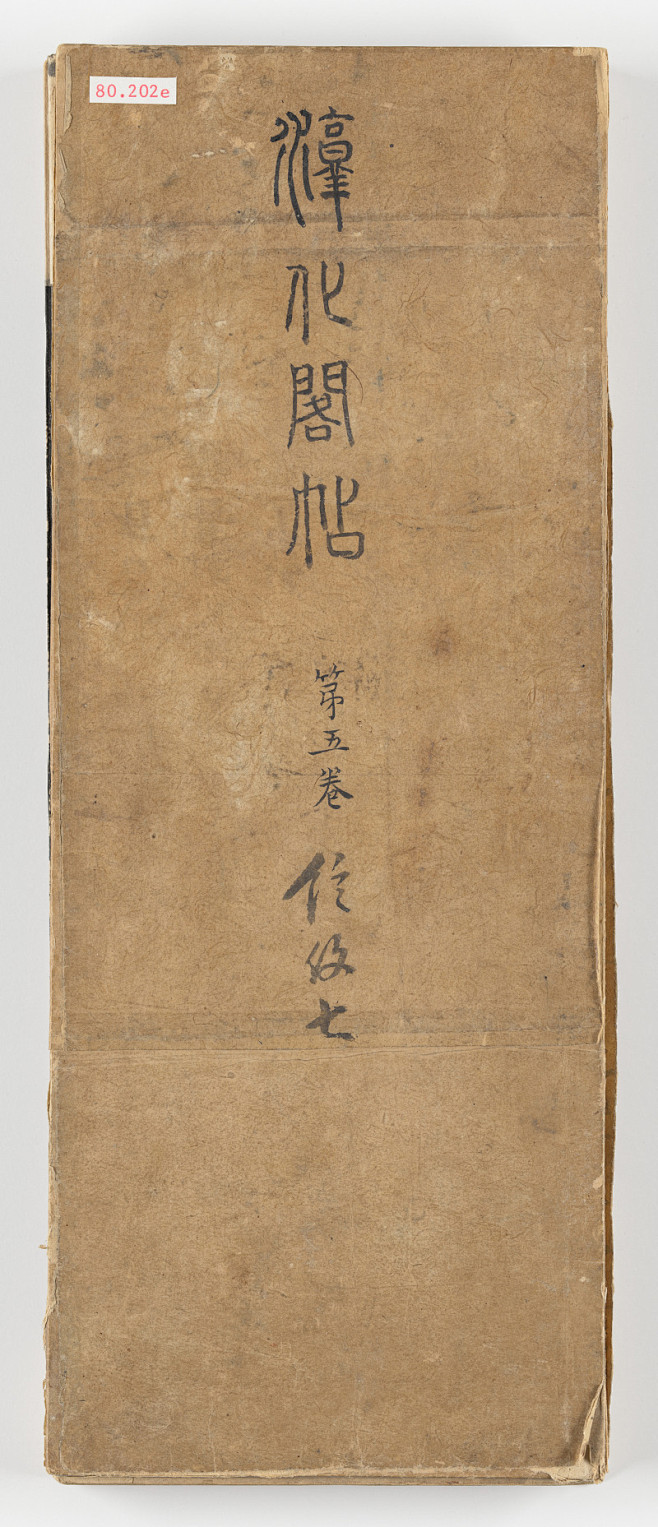 80.202e
淳化閣帖
第五卷
七